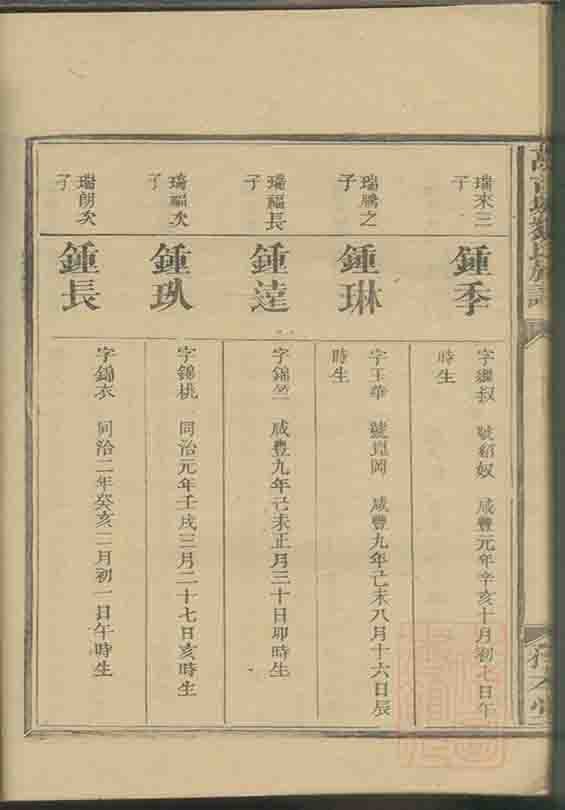 瑞來三
子
鍾季
字繼叔 號紹奴 咸豐元年辛亥十月初七日午
時生
瑞騰之
子
鍾琳
字玉華 號崑岡 咸豐九年己未八月十六日辰
時生
瑞福長
子
鍾達
字錦竺 咸豐九年己未正月三十日卯時生
瑞福次
子
鍾玖
字錦桃 同治元年壬戌三月二十七日亥時生
瑞朗次
子
鍾長
字錦衣 同治二年癸亥二月初一日午時生